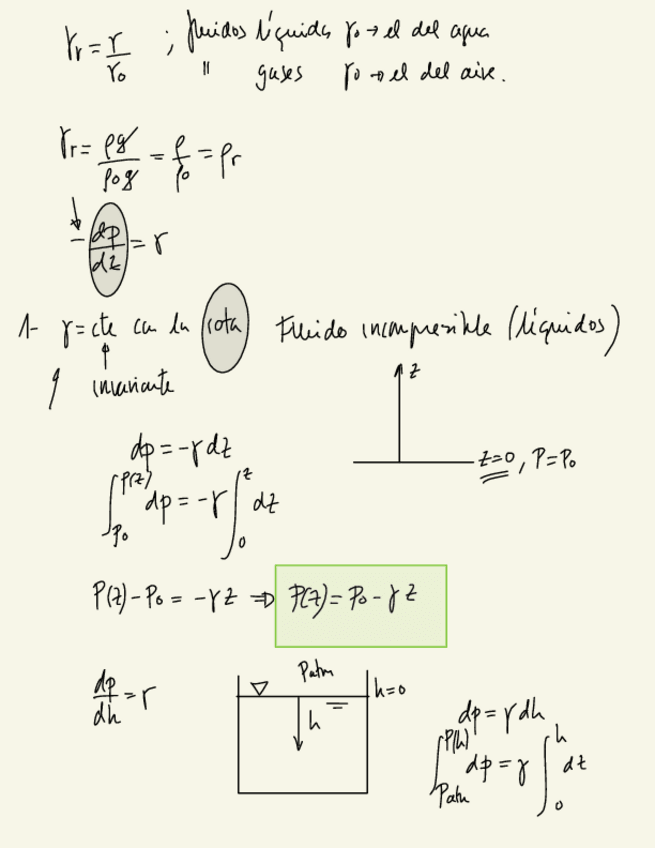 γr = γ/γo ; fluidos líquidos γo → el del agua
" gases γo → el del aire.
γr = ρg/ρog = ρ/ρo = ρr
- dp/dz = γ
1- γ = cte con la cota Fluido incompresible (líquidos)
ρ invariante
z
z=0, P=Po
dp = -γ dz
∫_{Po}^{P(z)} dp = -γ ∫_0^z dz
P(z) - Po = -γ z ⇒ P(z) = Po - γ z
dp/dh = γ
Patm
h=0
h
dp = γ dh
∫_{Patm}^{P(h)} dp = γ ∫_0^h dz